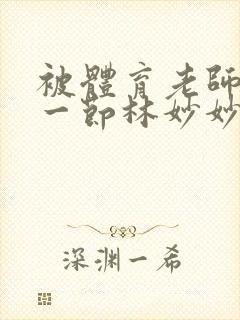 被體育老師
一節林妙妙
深渊一希